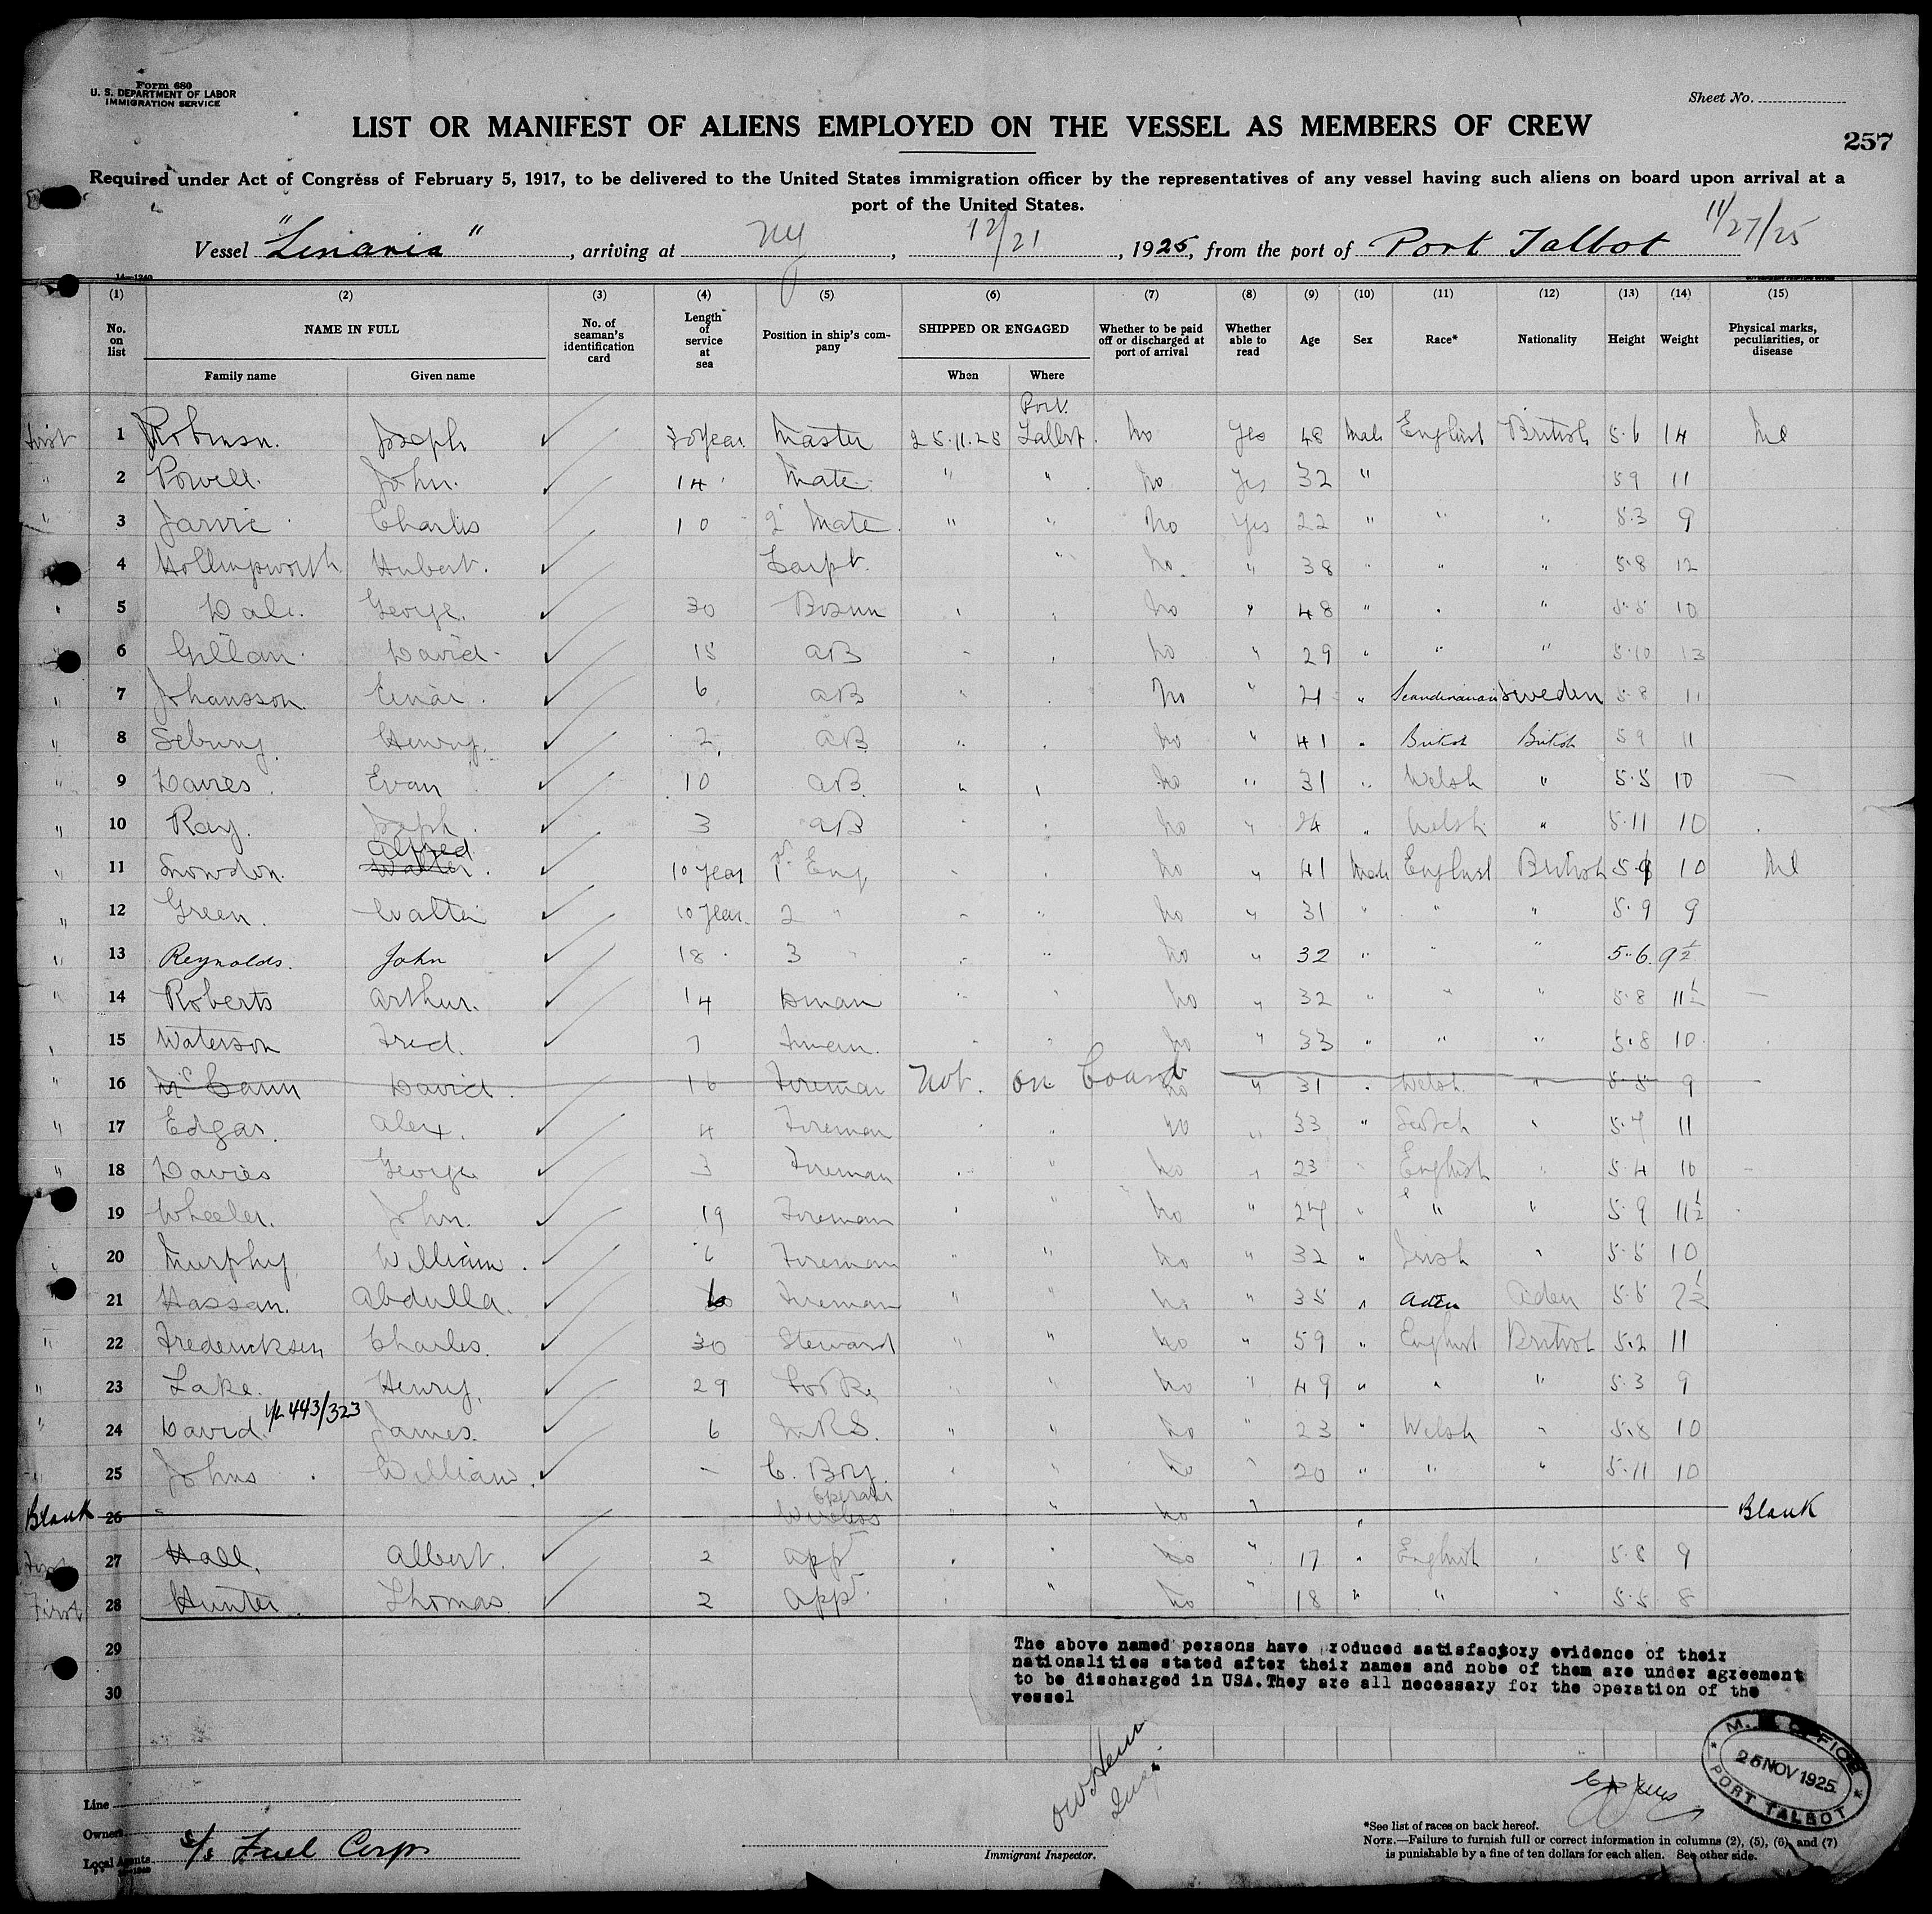 Form 680
U. S. DEPARTMENT OF LABOR
IMMIGRATION SERVICE
Sheet No.
LIST OR MANIFEST OF ALIENS EMPLOYED ON THE VESSEL AS MEMBERS OF CREW
257
Required under Act of Congress of February 5, 1917, to be delivered to the United States immigration officer by the representatives of any vessel having such aliens on board upon arrival at a
port of the United States.
Vessel "Linaria", arriving at NY, 12/21, 1925, from the port of Port Talbot 11/27/25
(1) (2) (3) (4) (5) (6) (7) (8) (9) (10) (11) (12) (13) (14) (15)
No. on list NAME IN FULL No. of seaman's identification card Length of service at sea Position in ship's company SHIPPED OR ENGAGED Whether to be paid off or discharged at port of arrival Whether able to read Age Sex Race* Nationality Height Weight Physical marks, peculiarities, or disease
Family name Given name When Where
First 1 Robinson. Joseph 30 Year Master 25.11.25 Port Talbot. No Yes 48 Male English British 5.6 14 Nil
" 2 Powell. John. 14 Mate " " No Yes 32 " 5 9 11
" 3 Jarvie Charles 10 2 Mate " " No Yes 22 " " " 5.3 9
4 Hollingsworth Hubert. Carpt. " No. " 38 " " " 5.8 12
5 Dale. George. 30 Bosun No " 48 " " 5.5 10
6 Gillan David 15 AB No " 29 " " " 5.10 13
" 7 Johansson. Einar. 6 AB No " 21 " Scandinavian Sweden 5.8 11
" 8 Sebury. Henry. 2 AB No " 41 " British British 5 9 11
" 9 Davies. Evan 10 AB No " 31 " Welsh " 5.5 10
" 10 Ray. Joseph. 3 AB No " 24 " Welsh " 5.11 10
" 11 Snowdon. Alfred Walter. 10 Year 1st Eng No " 41 Male English British 10 Nil
" 12 Green. Walter 10 Year. 2 " No " 31 " " " 5.9 9
" 13 Reynolds. John 18 3 " No " 32 " " " 5.6. 9½
" 14 Roberts Arthur. 14 Dman No " 32 " " " 5.8 11½
15 Waterson Fred. 7 Fman. No " 33 " " " 5.8 10
" 16 McCann David. 16 Fireman Not on board No " 31 Welsh " 5.5 9
" 17 Edgar. Alex. 4 Fireman No " 33 " Scotch 5.7 11
" 18 Davies George 3 Fireman No " 23 English 5.4 10
19 Wheeler. John. 19 Fireman No " 24 " " " 5.9 11½
20 Murphy William. 6 Fireman " " No " 32 " Irish " 5.5 10
21 Hassan. Abdulla. 6 Fireman " " No " 35 " Aden Aden 5.5
" 22 Fredericksen Charles. 30 Steward " " No " 59 " English British 5.2 11
" 23 Lake. Henry. 29 Cook No " 49 " " " 5.3 9
" 24 David. 443/323 James. 6 M.R.S. " " No " 23 " Welsh " 5.8 10
" 25 Johns William. – C. Boy. No " 20 " " " 5.11 10
Blank 26 Operator Wireless " " No " Blank
First 27 Hall. Albert. 2 App No " 17 " English 5.8 9
First 28 Hunter. Thomas 2 App. " No " 18 " " 5.5 8
29
30
The above named persons have roduced satisfactory evidence of their
nationalities stated after their names and nobe of them are under agreement
to be discharged in USA. They are all necessary for the operation of the
vessel
M. M. OFFICE
25 NOV 1925
PORT TALBOT
Line
Owners
Local Agents S/S Fuel Corp
Immigrant Inspector.
*See list of races on back hereof.
NOTE.—Failure to furnish full or correct information in columns (2), (5), (6), and (7)
is punishable by a fine of ten dollars for each alien. See other side.